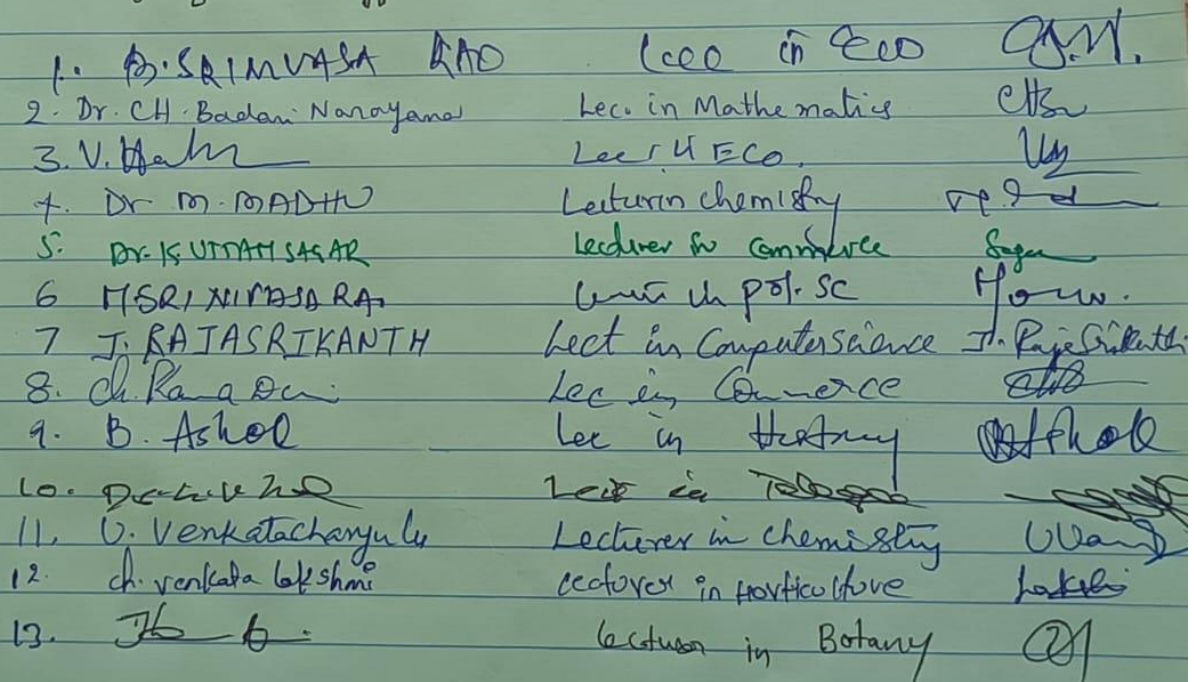 1. B. SRINIVASA RAO Lec in Eco
2. Dr. CH. Badari Narayana Lec. in Mathematics CHBn
3. V. Lec in ECO.
4. Dr M. MADHU Lecturin chemistry
5. Dr. K. UTTAM SAGAR Lecturer in Commerce Sagar
6 M SRINIVASA RAO in pol. SC
7 J. RAJASRIKANTH Lect in Computerscience J. RajaSrikanth
8. Ch. Rama Lec in Commerce
9. B. Ashok Lec in History Ashok
10. Lect in Telugu
11. V. Venkatacharyulu Lecturer in chemistry
12. ch. venkata lakshmi lecturer in Horticulture Lakshmi
13. lecturer in Botany